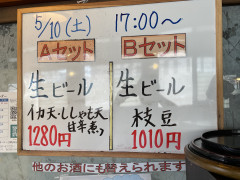 5/10(土) 17:00～
Aセット Bセット
生ビール 生ビール
イカ天・ししゃも天 枝豆
甘辛煮
1280円 1010円
他のお酒にも替えられます